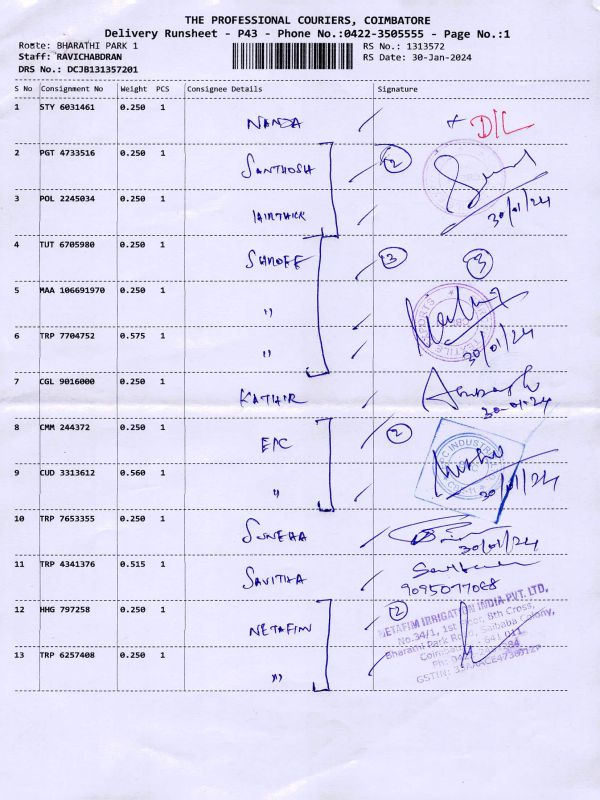 THE PROFESSIONAL COURIERS, COIMBATORE
Delivery Runsheet - P43 - Phone No.:0422-3505555 - Page No.:1
Route: BHARATHI PARK 1
Staff: RAVICHABDRAN
DRS No.: DCJB131357201
RS No.: 1313572
RS Date: 30-Jan-2024
S No Consignment No Weight PCS Consignee Details Signature
1 STY 6031461 0.250 1
NANDA D/L
2 PGT 4733516 0.250 1
SANTHOSH 2
3 POL 2245034 0.250 1
30/01/24
4 TUT 6705980 0.250 1
SHROFF 3 3
5 MAA 106691970 0.250 1
"
6 TRP 7704752 0.575 1
" 30/01/24
7 CGL 9016000 0.250 1
KATHIR 30-01-24
8 CMM 244372 0.250 1
EPC 2
9 CUD 3313612 0.560 1
" 30/01/24
10 TRP 7653355 0.250 1
SUNEHA 30/01/24
11 TRP 4341376 0.515 1
SAVITHA
9095077088
12 HHG 797258 0.250 1
NETAFIM 2
NETAFIM IRRIGATION INDIA PVT. LTD.
No.34/1, 1st Floor, 8th Cross,
Bharathi Park Road, Saibaba Colony,
13 TRP 6257408 0.250 1
"